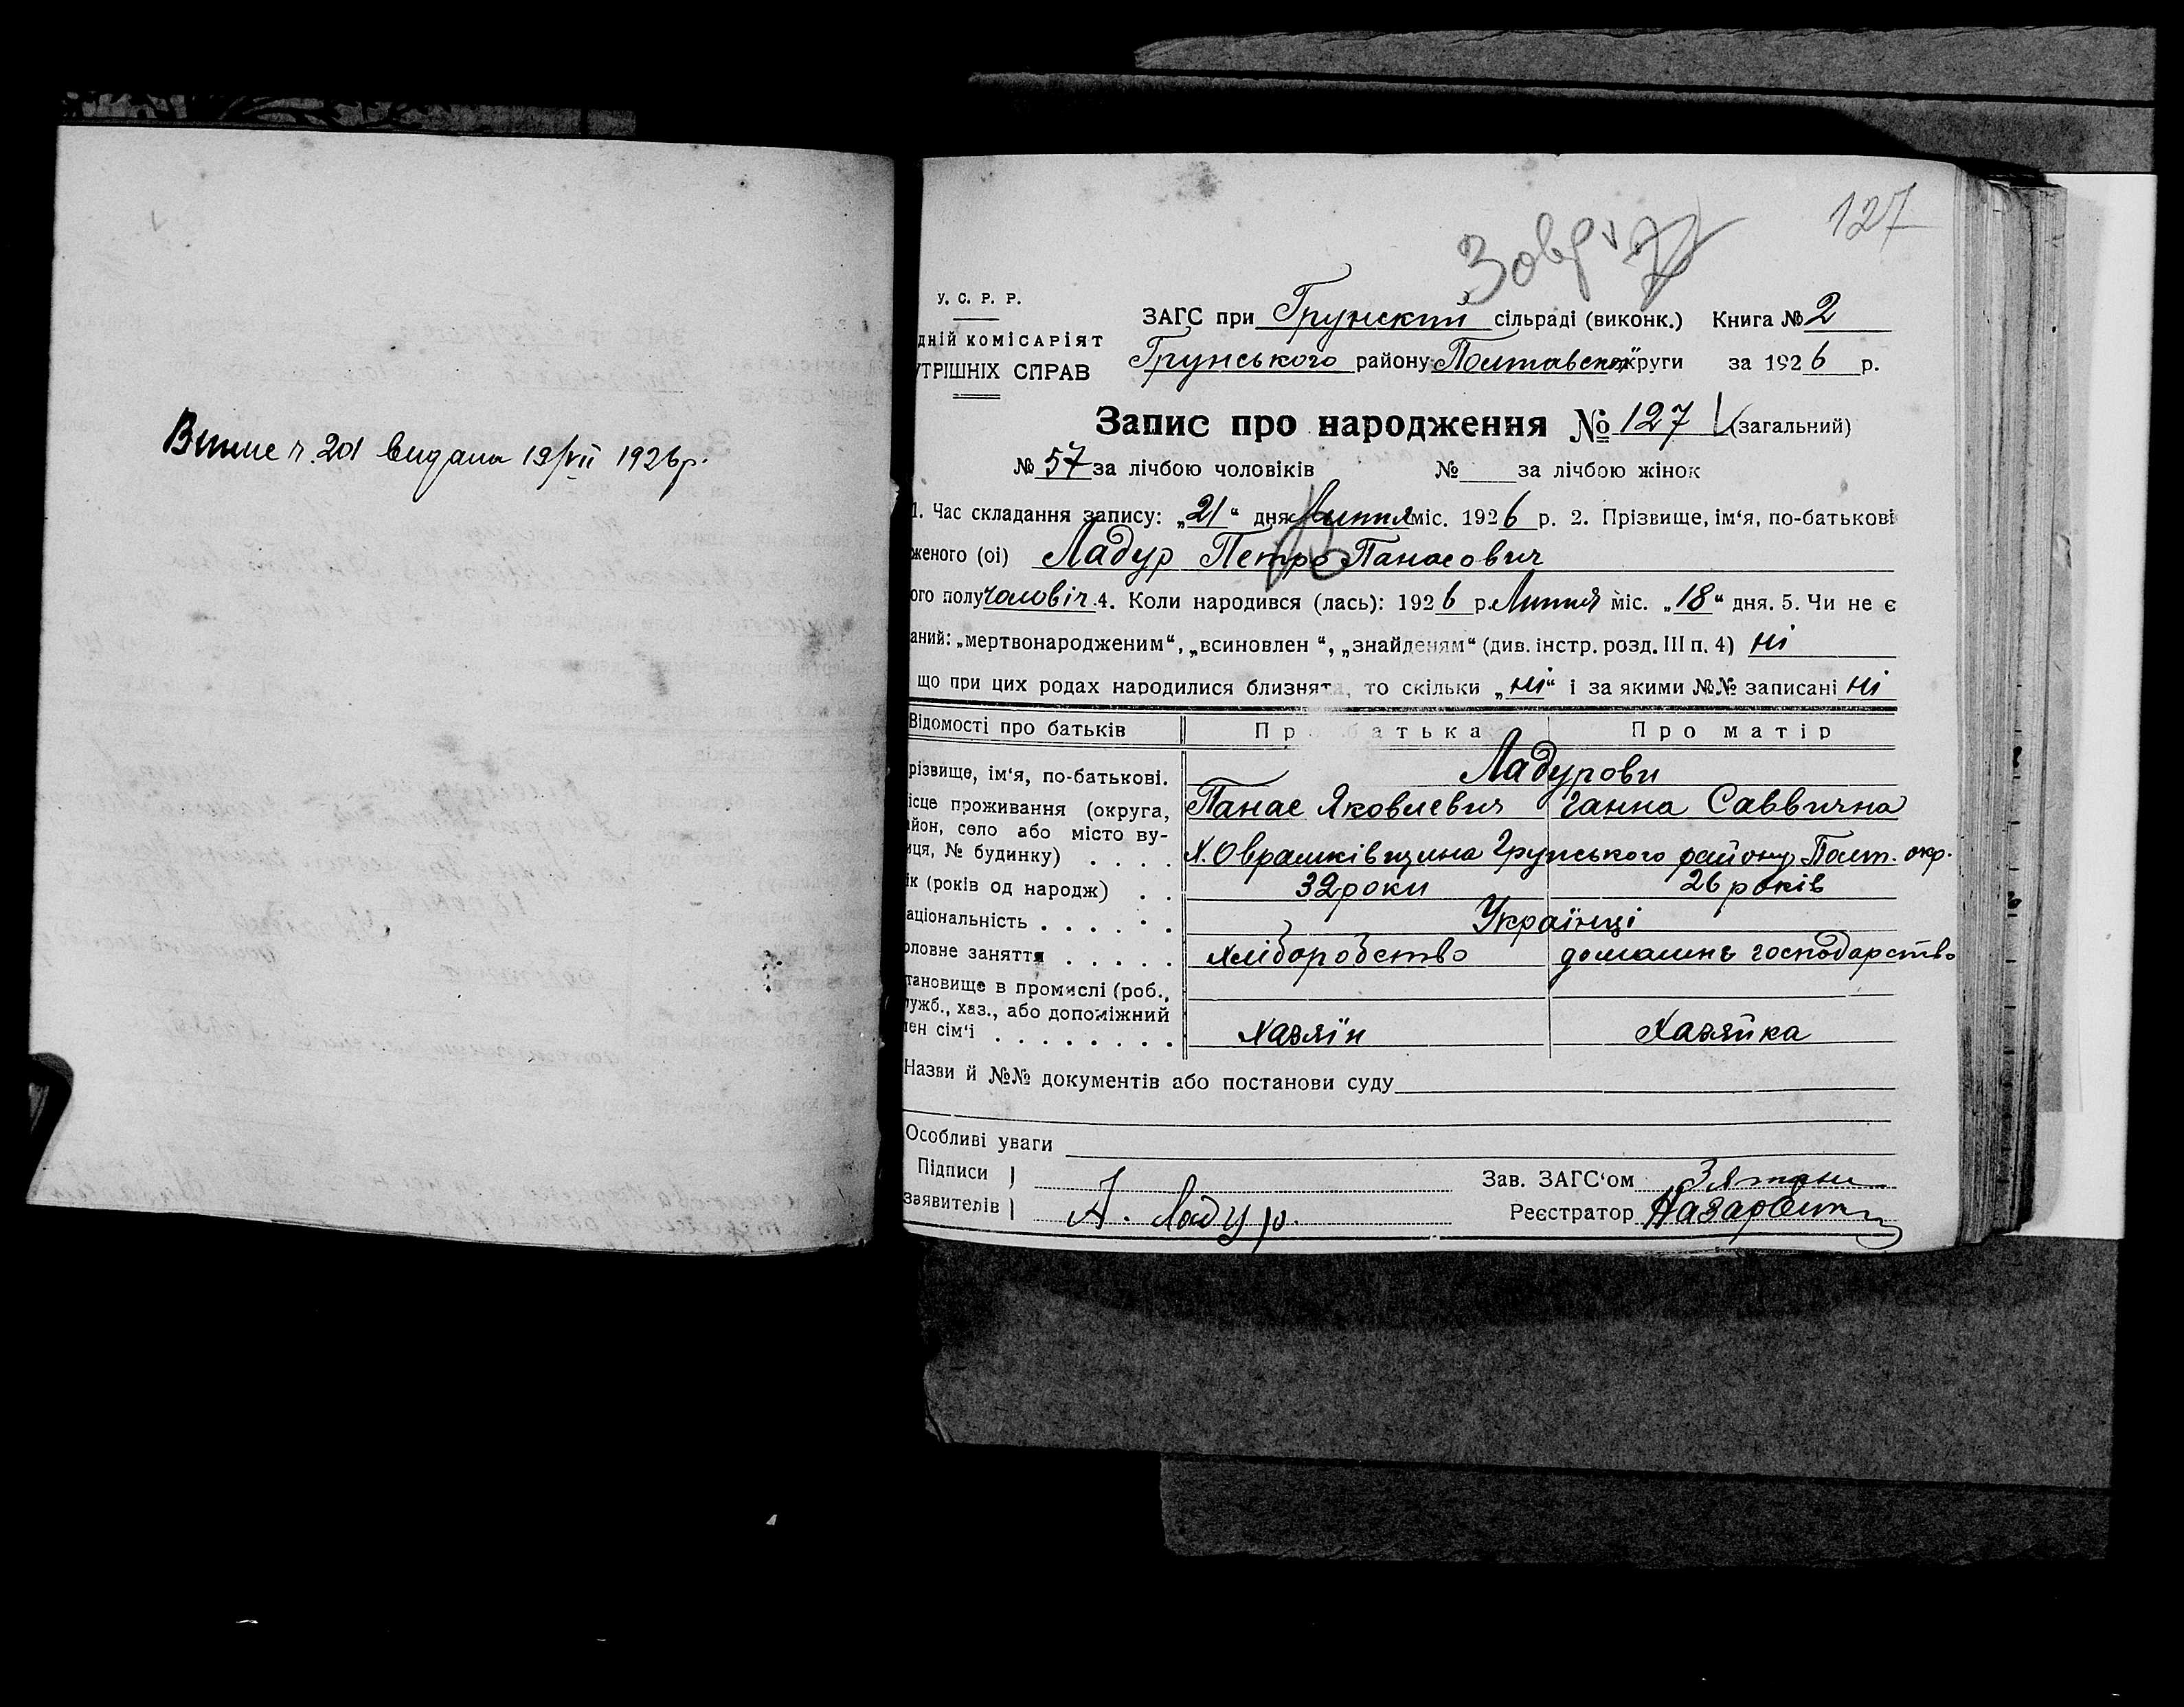 Випис ч. 201 видана 19/VII 1926 р.
127
У. С. Р. Р.
ЗАГС при Грунский сільраді (виконк.) Книга № 2
дній комісаріят
Грунського району Полтавської округи за 1926 р.
УТРІШНІХ СПРАВ
Запис про народження № 127 (загальний)
№ 57 за лічбою чоловіків № за лічбою жінок
1. Час складання запису: „21“ дня Липня міс. 1926 р. 2. Прізвище, ім‘я, по-батькові
женого (ої) Ладур Петро Панасович
ого полу чоловіч. 4. Коли народився (лась): 1926 р. Липня міс. „18“ дня. 5. Чи не є
аний: „мертвонародженим“, „всиновлен “, „знайденям“ (див. інстр. розд. III п. 4) ні
що при цих родах народилися близнята, то скільки „ні“ і за якими №№ записані ні
Відомості про батьків Про батька Про матір
Ладурови
різвище, ім‘я, по-батькові.
Панас Яковлевич Ганна Саввична
ісце проживання (округа,
йон, село або місто ву-
иця, № будинку) . . . . Х. Оврашківщина Грунського району Полт. окр.
ік (років од народж) . . 32 роки 26 років
аціональність . . . . . . Українці
оловне заняття . . . . . хліборобство домашнє господарство
тановище в промислі (роб.,
лужб., хаз., або допоміжний
лен сім‘ї . . . . . . . . Хазяїн Хазяйка
Назви й №№ документів або постанови суду
Особливі уваги
Підписи ) Зав. ЗАГС‘ом
заявителів ) А. Ладур. Реєстратор